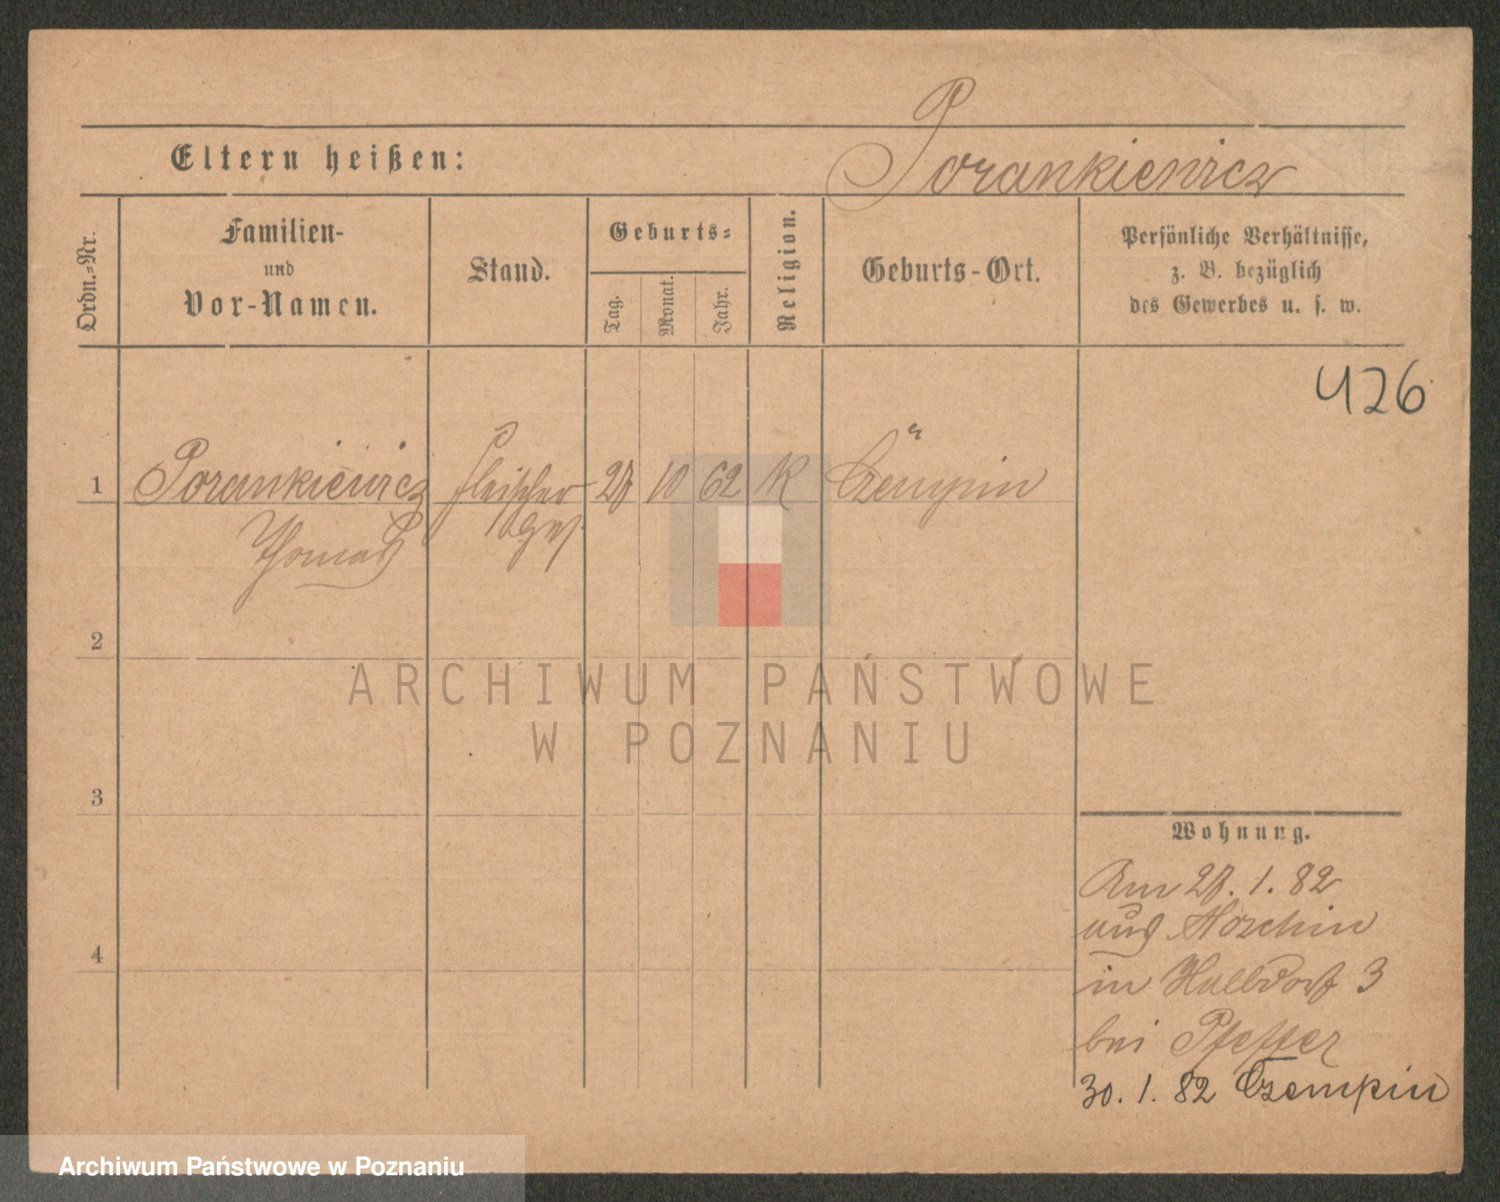 Porankiewicz
Eltern heißen:
Ordn.-Nr.
Familien-
und
Vor-Namen.
Stand.
Geburts-
Tag.
Monat.
Jahr.
Religion.
Geburts-Ort.
Persönliche Verhältnisse,
z. B. bezüglich
des Gewerbes u. s. w.
426
1 Porankiewicz Fleischer 10 62 K Czempin
Thomas ges.
2
3
4
Wohnung.
Am 1. 82
aus
in Halldorf 3
bei Pfeffer
30. 1. 82 Czempin
ARCHIWUM PAŃSTWOWE
W POZNANIU
Archiwum Państwowe w Poznaniu